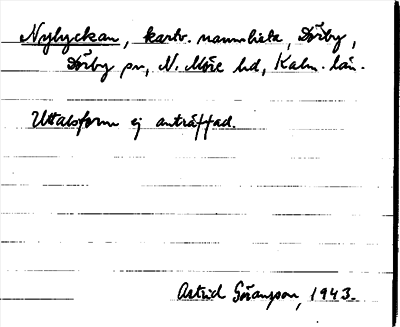 Nylyckan, kartv. namnlista, Dörby,
Dörby sn, N. Möre hd, Kalm. län.
Uttalsform ej anträffad.
Astrid Göransson, 1943.